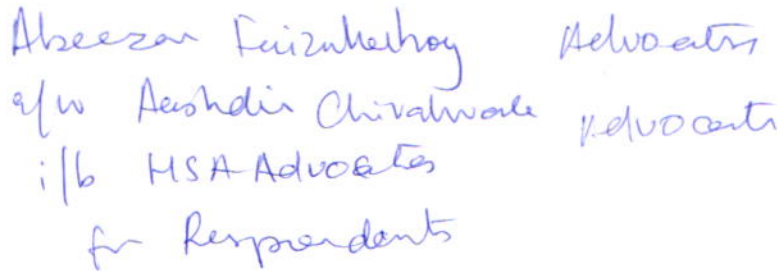 Abeezar Faizullabhoy Advocates
a/w Aashdin Chivalwala Advocate
i/b HSA Advocates
for Respondents